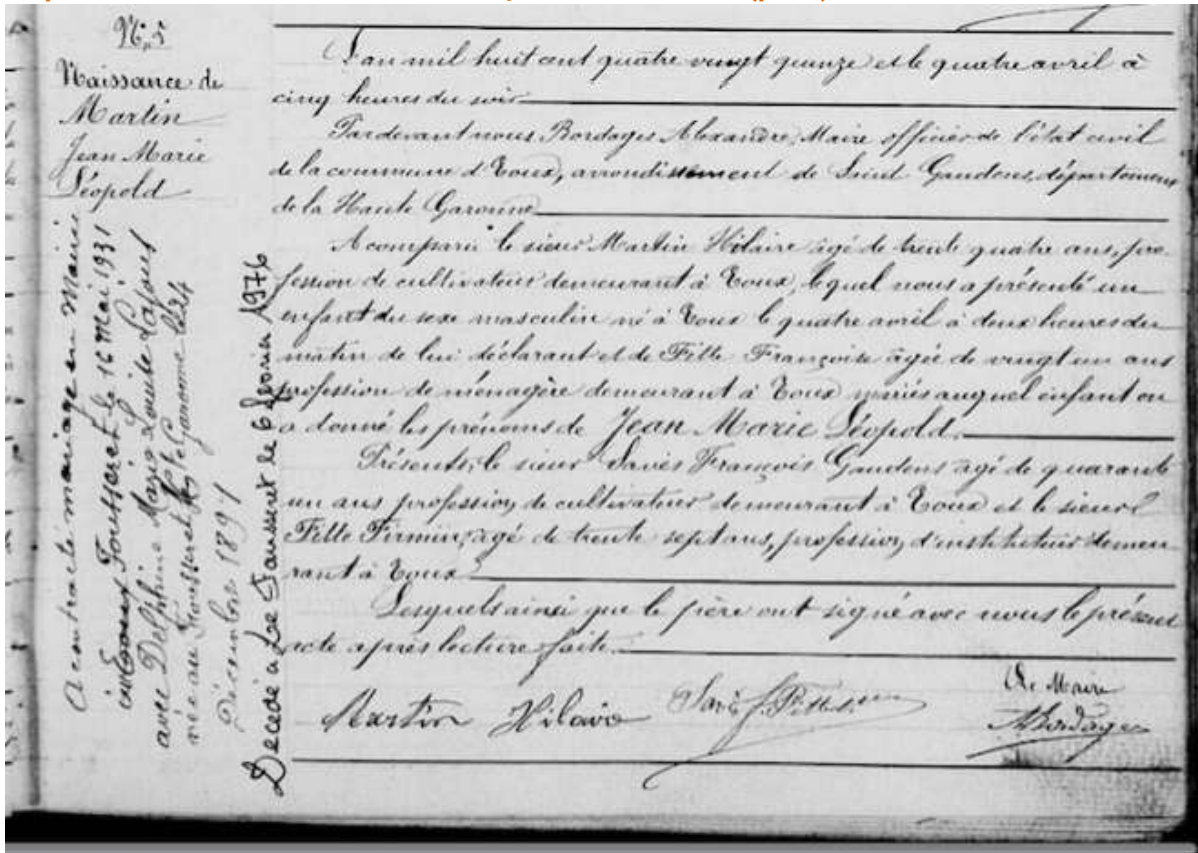 N° 5
Naissance de
Martin
Jean Marie
Léopold
A contracté mariage en Mairie
Fousseret le 16 Mai 1931
avec Delphine Marie Louise Lafont
née au Fousseret Hte Garonne le 24
Décembre 1891
Décédé à Le Fausseret le 6 Février 1976
L'an mil huit cent quatre vingt quinze et le quatre avril à
cinq heures du soir
Pardevant nous Bordages Alexandre, Maire officier de l'état civil
de la commune d'Eoux, arrondissement de Saint Gaudens, département
de la Haute Garonne
A comparu le sieur Martin Hilaire âgé de trente quatre ans, pro-
fession de cultivateur demeurant à Eoux, lequel nous a présenté un
enfant du sexe masculin né à Eoux le quatre avril à deux heures du
matin de lui déclarant et de Fitte Françoise âgée de vingt un ans
profession de ménagère demeurant à Eoux mariés auquel enfant on
a donné les prénoms de Jean Marie Léopold.
Présents, le sieur Savès François Gaudens âgé de quarante
un ans profession de cultivateur demeurant à Eoux et le sieur
Fitte Firmin, âgé de trente sept ans, profession d'instituteur demeu
rant à Eoux
Lesquels ainsi que le père ont signé avec nous le présent
acte après lecture faite.
Martin Hilaire
Savès
F. Fitte
Le Maire
A Bordages